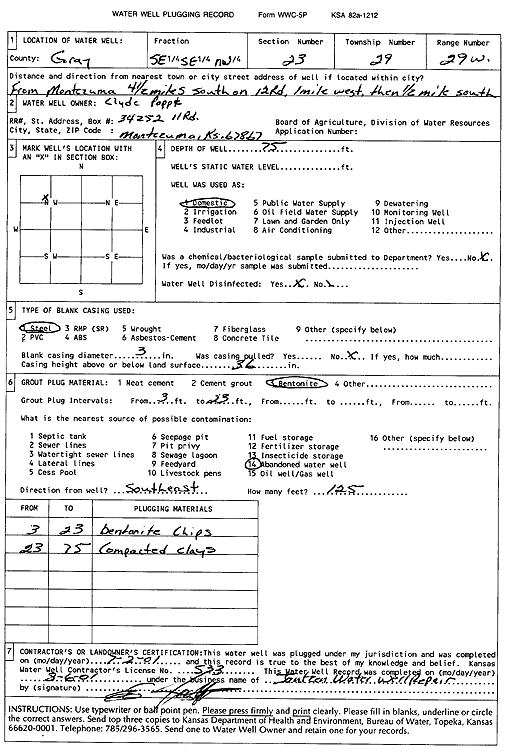 WATER WELL PLUGGING RECORD Form WWC-5P KSA 82a-1212
1 LOCATION OF WATER WELL: Fraction Section Number Township Number Range Number
County: Gray SE1/4 SE1/4 NW/4 23 29 29W.
Distance and direction from nearest town or city street address of well if located within city?
From Montezuma 4 1/2 miles south on 12Rd, 1 mile west, then 1/2 mile south
2 WATER WELL OWNER: Clyde Poppt
RR#, St. Address, Box #: 34252 11Rd Board of Agriculture, Division of Water Resources
City, State, ZIP Code : Montezuma, Ks. 67867 Application Number:
3 MARK WELL'S LOCATION WITH AN "X" IN SECTION BOX:
N
X
N W N E
W E
S W S E
S
4 DEPTH OF WELL.....75.....ft.
WELL'S STATIC WATER LEVEL..........ft.
WELL WAS USED AS:
1 Domestic 5 Public Water Supply 9 Dewatering
2 Irrigation 6 Oil Field Water Supply 10 Monitoring Well
3 Feedlot 7 Lawn and Garden Only 11 Injection Well
4 Industrial 8 Air Conditioning 12 Other..........
Was a chemical/bacteriological sample submitted to Department? Yes....No.X.
If yes, mo/day/yr sample was submitted..........
Water Well Disinfected: Yes..X. No.....
5 TYPE OF BLANK CASING USED:
1 Steel 3 RMP (SR) 5 Wrought 7 Fiberglass 9 Other (specify below)
2 PVC 4 ABS 6 Asbestos-Cement 8 Concrete Tile
Blank casing diameter....3....in. Was casing pulled? Yes...... No..X... If yes, how much..........
Casing height above or below land surface....36....in.
6 GROUT PLUG MATERIAL: 1 Neat cement 2 Cement grout 3 Bentonite 4 Other..........
Grout Plug Intervals: From..3..ft. to..23..ft., From......ft. to ......ft., From......ft. to......ft.
What is the nearest source of possible contamination:
1 Septic tank 6 Seepage pit 11 Fuel storage 16 Other (specify below)
2 Sewer lines 7 Pit privy 12 Fertilizer storage
3 Watertight sewer lines 8 Sewage lagoon 13 Insecticide storage
4 Lateral lines 9 Feedyard 14 Abandoned water well
5 Cess Pool 10 Livestock pens 15 Oil well/Gas well
Direction from well? ...Southeast... How many feet? ....125....
FROM TO PLUGGING MATERIALS
3 23 Bentonite Chips
23 75 Compacted clays
7 CONTRACTOR'S OR LANDOWNER'S CERTIFICATION: This water well was plugged under my jurisdiction and was completed
on (mo/day/year)....7-2-01....and this record is true to the best of my knowledge and belief. Kansas
Water Well Contractor's License No. ....533.... This Water Well Record was completed on (mo/day/year)
under the business name of Water Well Repair
by (signature)
INSTRUCTIONS: Use typewriter or ball point pen. Please press firmly and print clearly. Please fill in blanks, underline or circle
the correct answers. Send top three copies to Kansas Department of Health and Environment, Bureau of Water, Topeka, Kansas
66620-0001. Telephone: 785/296-3565. Send one to Water Well Owner and retain one for your records.